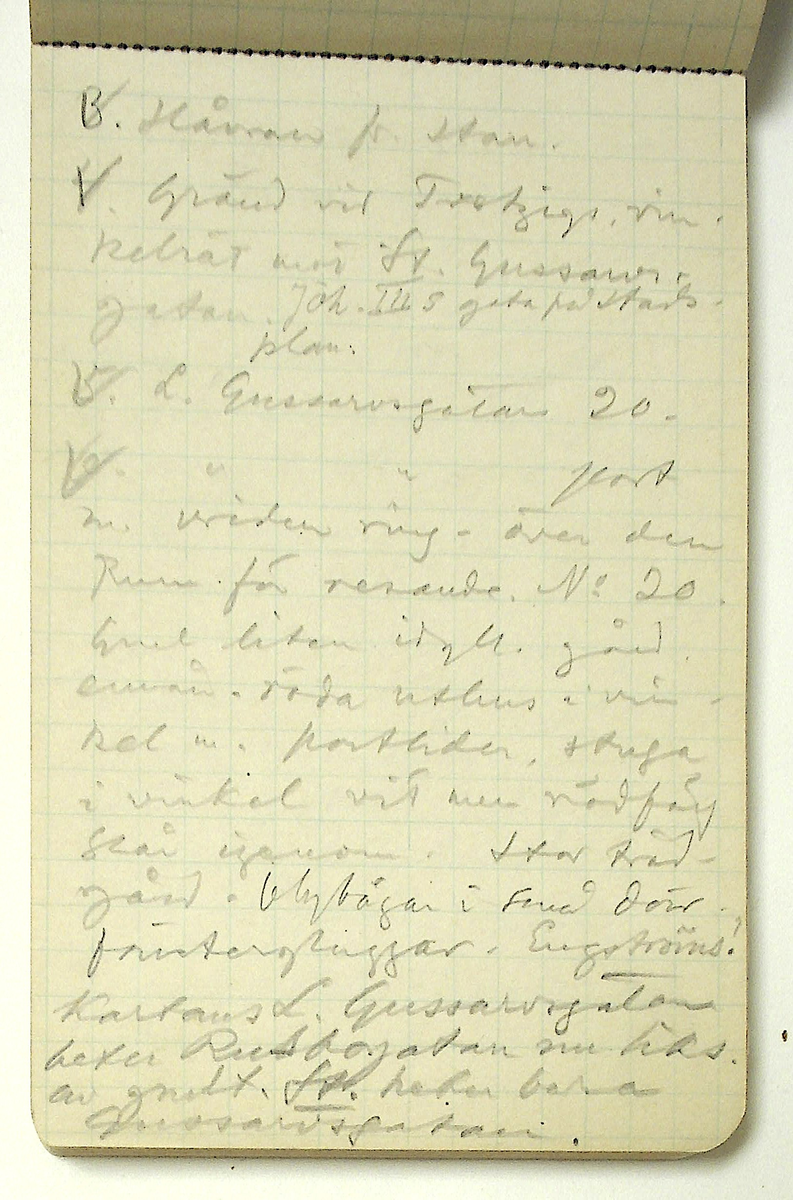 3. Håvran fr. stan.
4. Gränd vid Trotzigs, vin-
kelrät mot St. Gussarvs-
gatan. Joh. III s gata på stads-
plan.
5. L. Gussarvsgatan 20.
6. " " port
m. vriden ring - över den
Rum för resande. No 20.
Gml liten idyll. gård.
envån. röda uthus i vin-
kel m. portlider, stuga
i vinkel vit men rödfärg
slår igenom. Stor träd-
gård. Blybågar i små
fönstergluggar. Engströms!
Kartans L. Gussarvsgatan
heter nu
av gml t. St. heter bara
Gussarvsgatan.